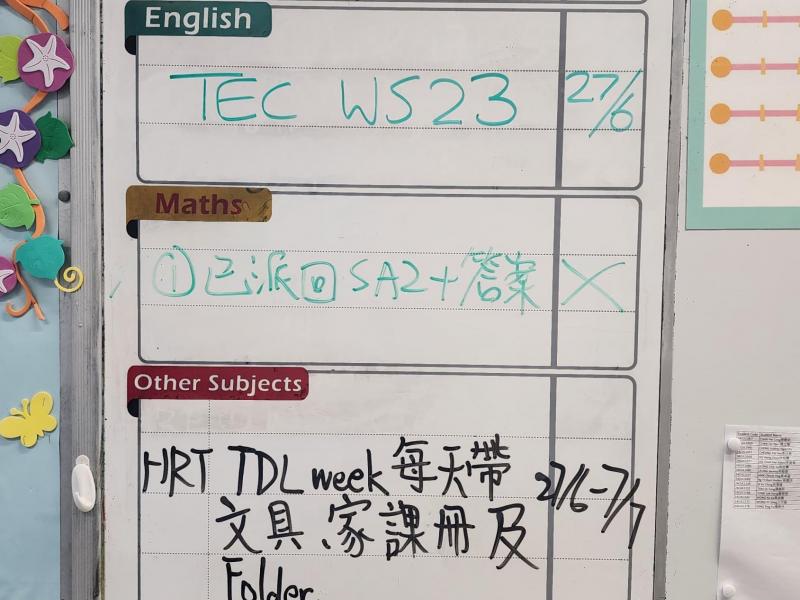 English
TEC WS23 27/6
Maths
① 已派回 SA2+答案 X
Other Subjects
HRT TDL week 每天帶 27/6-7/7
文具、家課冊及
Folder